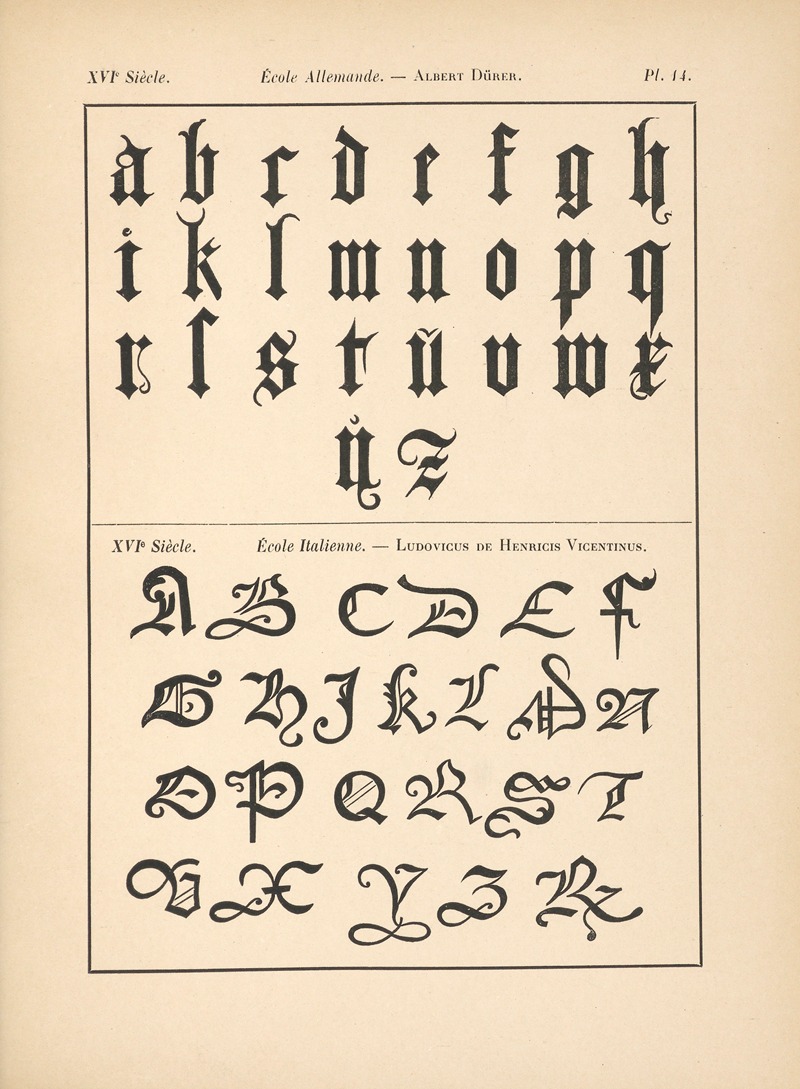 XVIe Siècle. École Allemande. — ALBERT DÜRER. Pl. 14.
a b c d e f g h
i k l m n o p q
r ſ s t ŭ v w x
ÿ z
XVIe Siècle. École Italienne. — LUDOVICUS DE HENRICIS VICENTINUS.
A B C D E F
G H J K L M N
O P Q R S T
V X Y Z